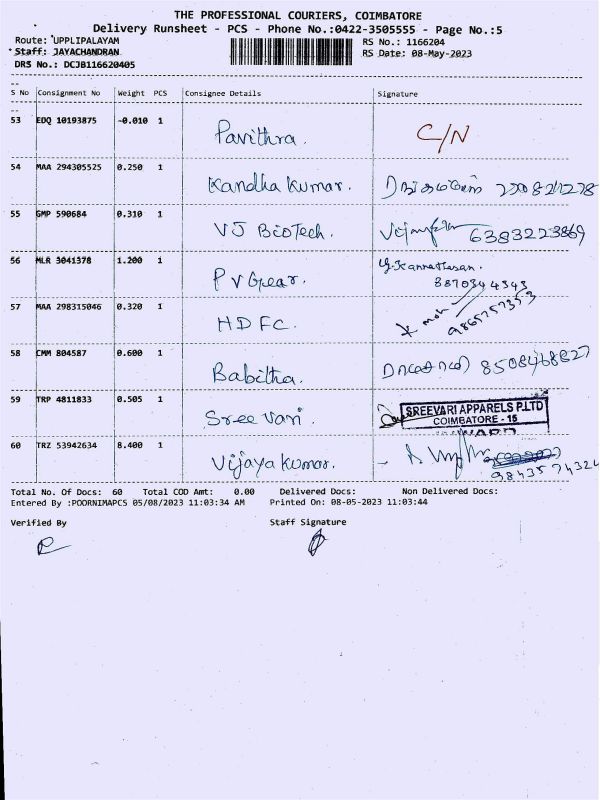 THE PROFESSIONAL COURIERS, COIMBATORE
Delivery Runsheet - PCS - Phone No.:0422-3505555 - Page No.:5
Route: UPPLIPALAYAM RS No.: 1166204
Staff: JAYACHANDRAN RS Date: 08-May-2023
DRS No.: DCJB116620405
S No Consignment No Weight PCS Consignee Details Signature
53 EDQ 10193875 -0.010 1 Pavithra. C/N
54 MAA 294305525 0.250 1 Kandha Kumar.
55 GMP 590684 0.310 1 VJ BioTech. 6383223869
56 MLR 3041378 1.200 1 P V Gear. G. Kannathasan.
8870344343
57 MAA 298315046 0.320 1 HDFC.
58 CMM 804587 0.600 1 Babitha. 8508468827
59 TRP 4811833 0.505 1 Sree Vari. SREEVARI APPARELS P.LTD
COIMBATORE - 15
60 TRZ 53942634 8.400 1 Vijaya Kumar.
9843574324
Total No. Of Docs: 60 Total COD Amt: 0.00 Delivered Docs: Non Delivered Docs:
Entered By :POORNIMAPCS 05/08/2023 11:03:34 AM Printed On: 08-05-2023 11:03:44
Verified By Staff Signature